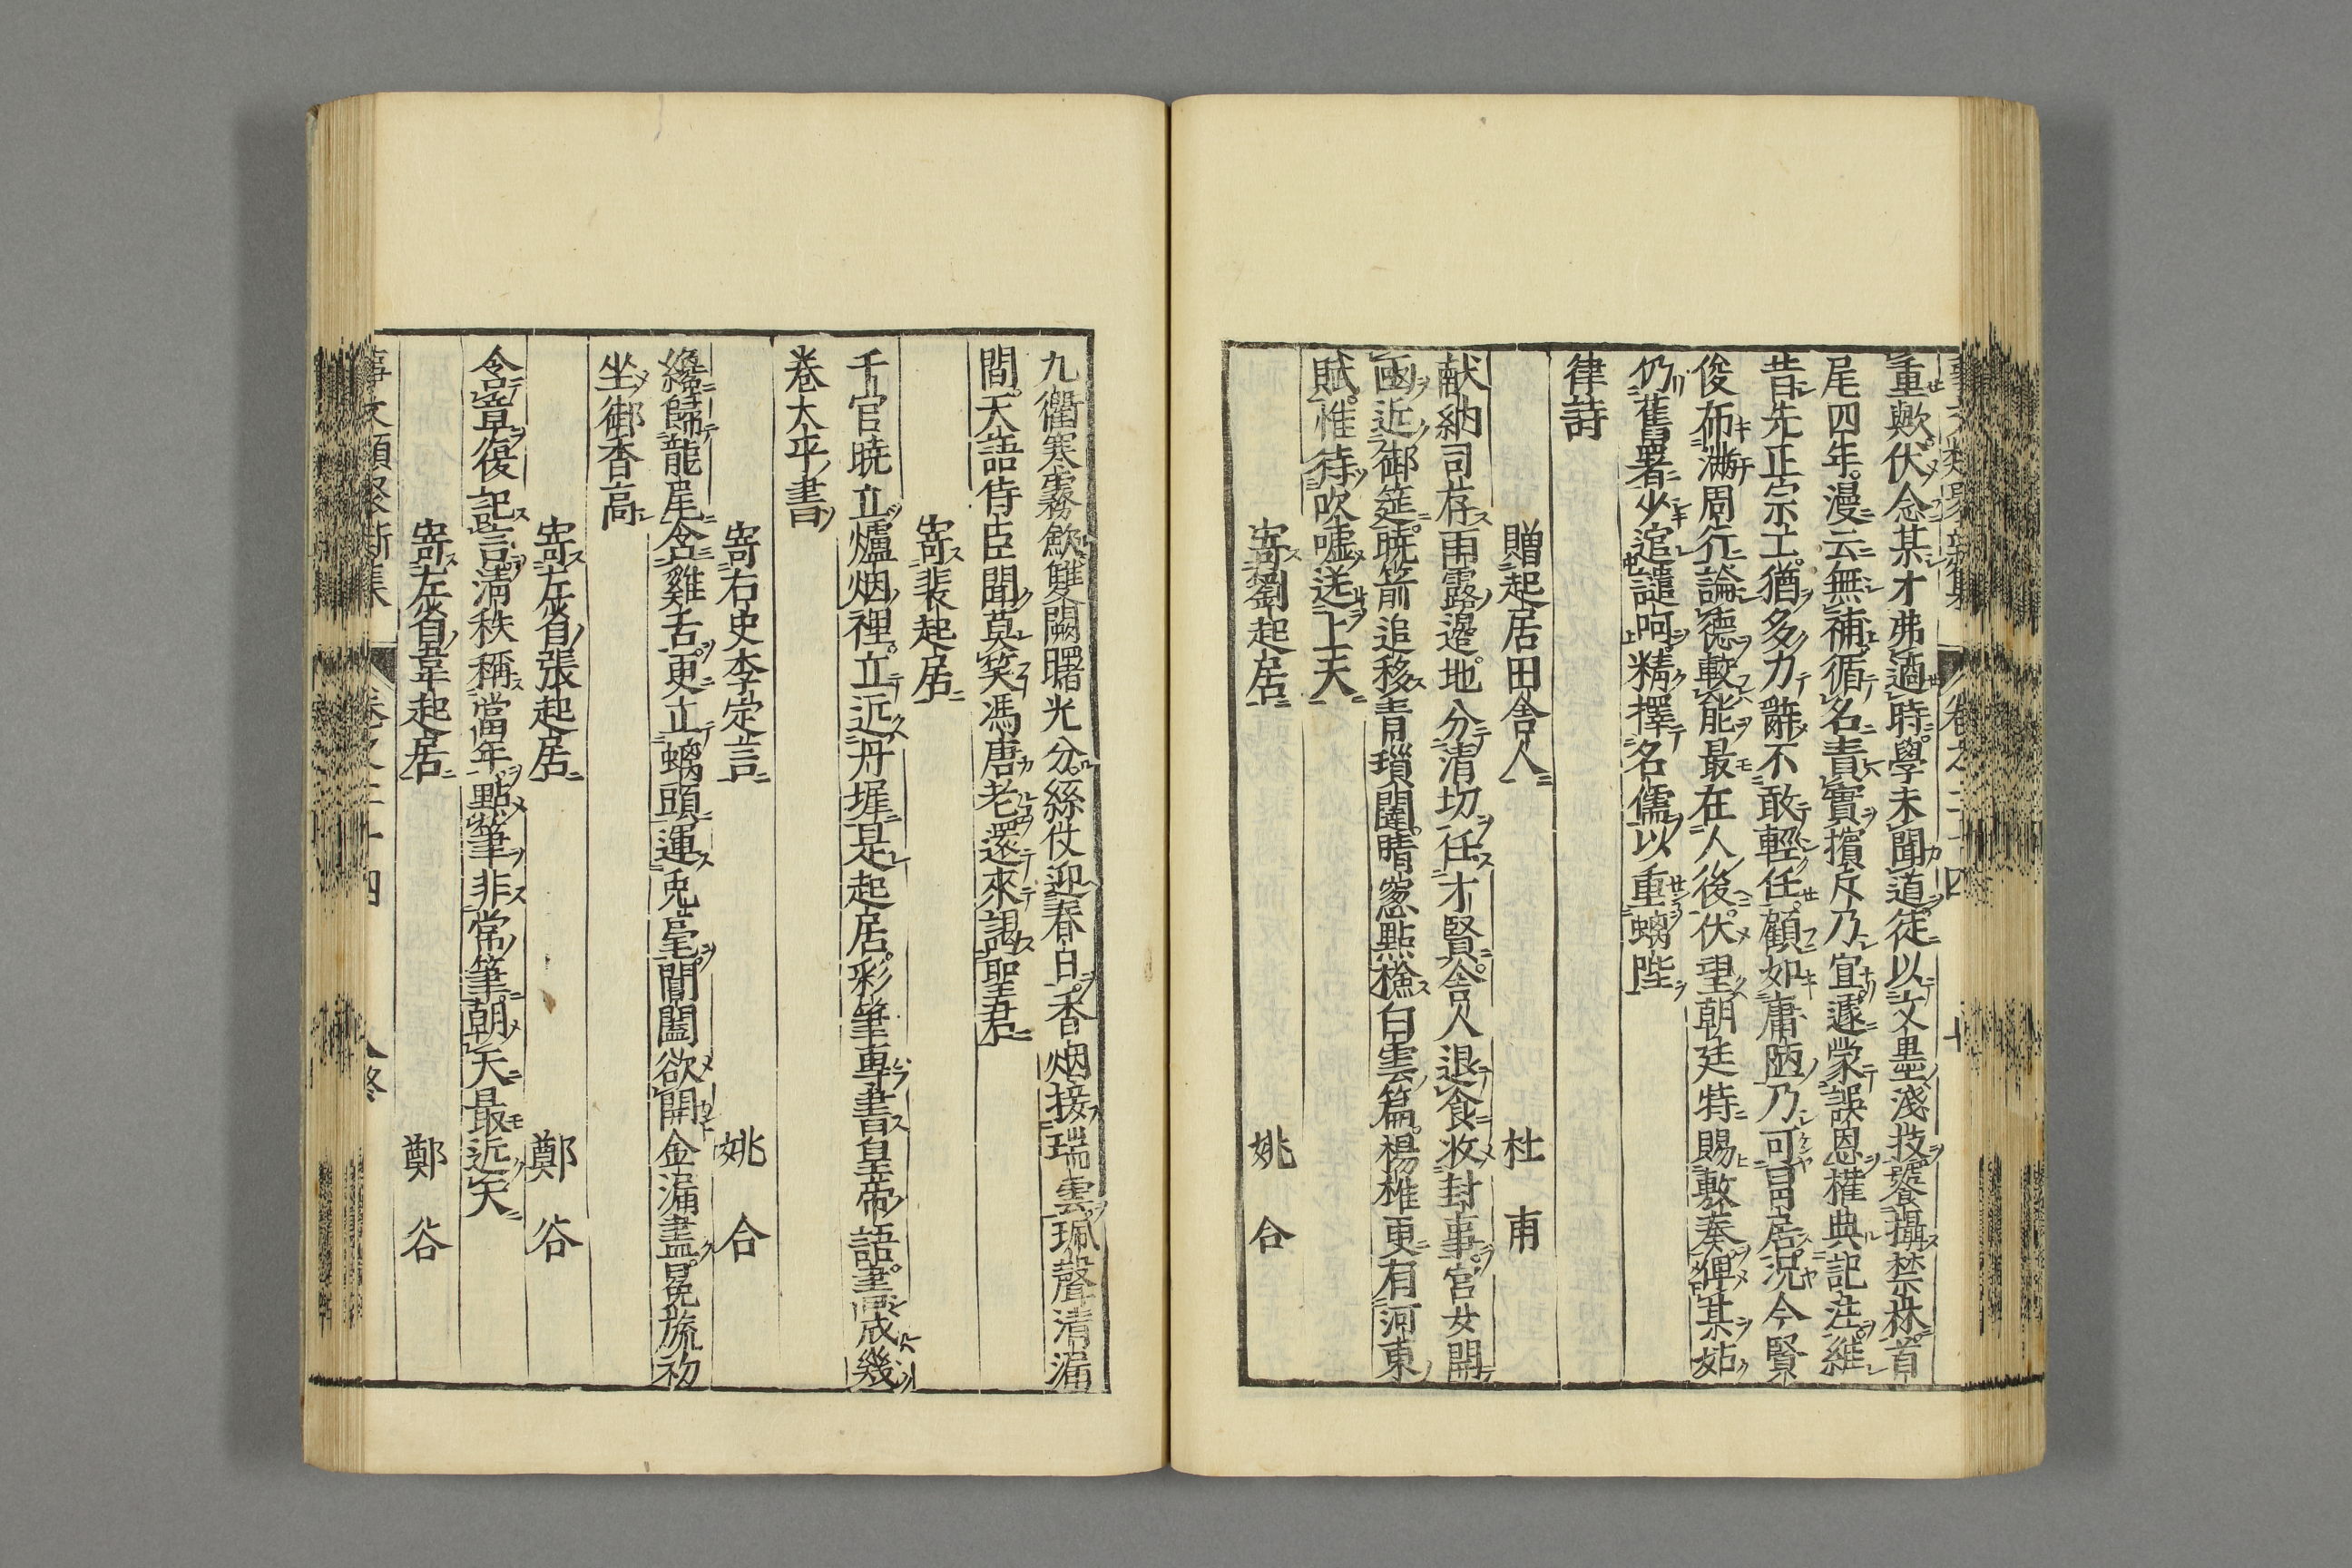 重歟伏念某才弗適時學未聞道徒以文墨淺技饕攝禁林首
尾四年漫云無補循名責實擯斥乃宜遽蒙誤恩權典記注維
昔先正宗工猶多力辭不敢輕任顧如庸陋乃可冒居況今賢
俊布滿周行論德較能最在人後伏望朝廷特賜敷奏俾某姑
仍舊署少逭譴呵精擇名儒以重螭陛
律詩
贈起居田舍人 杜甫
献納司存雨露邊地分清切任才賢舍人退食收封事宮女開
函近御筵曉箭追移青瑣闥晴窓點檢白雲篇楊雄更有河東
賦惟待吹噓送上天
寄劉起居 姚合
九衢寒霧歛雙闕曙光分絲仗迎春白香烟接瑞雲珮聲清漏
間天語侍臣聞莫笑馮唐老還來謁聖君
寄裴起居
千官曉立爐烟裡立近丹墀是起居彩筆專書皇帝語書成幾
卷太平書
寄右史李定言 姚合
纔歸龍尾含雞舌更立螭頭運兎毫閶闔欲開金漏盡冕旒初
坐御香高
寄左省張起居 鄭谷
含章復記言清秩稱當年點筆非常筆朝天最近天
寄左省韋起居 鄭谷